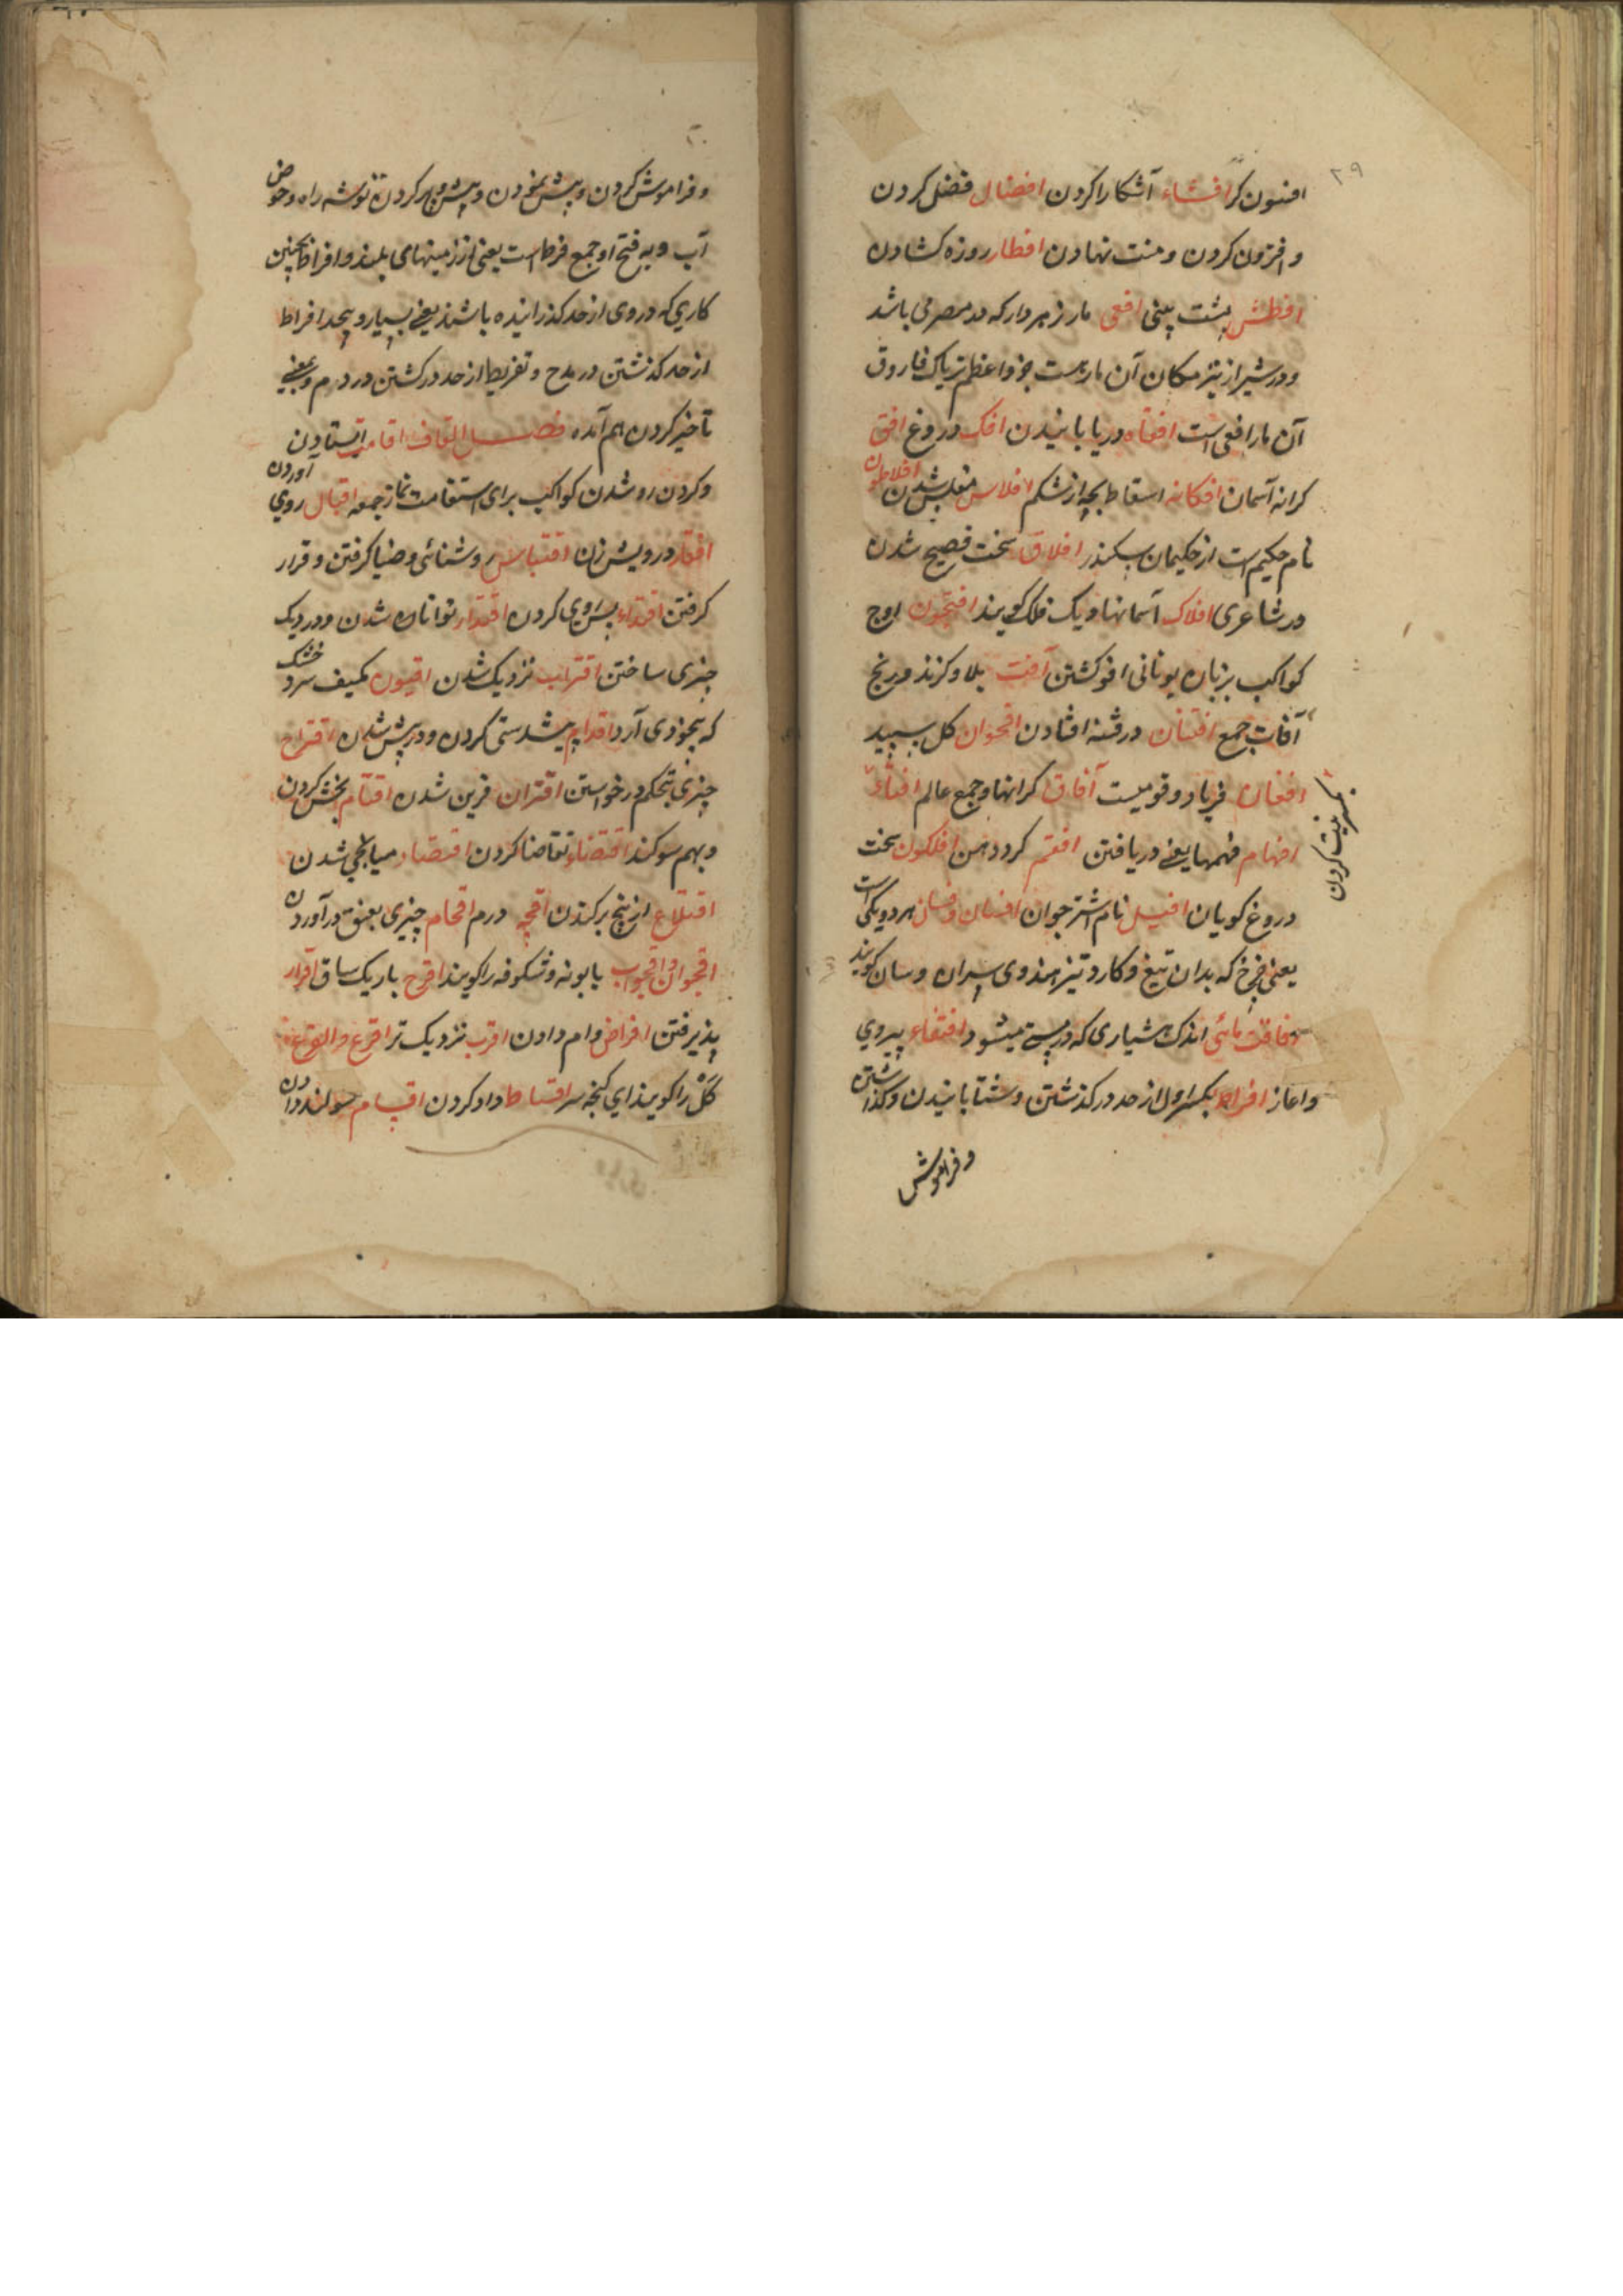 ۲۹
افسون کر افشاء آشکارا کردن افضال فضل کردن
و افزون کردن و منت نهادن افطار روزه کشادن
افطش پشت بینی افعی مار زهردار که در مصر می باشد
و در شیراز نیز مکان آن مار هست جزو اعظم تریاک فاروق
آن مار افعی است دریابانیدن افک دروغ افق
کرانه آسمان افکانه اسقاط بچه از شکم افلاس مفلس شدن افلاطون
نام حکیم است از حکیمان سکندر افلاق سخت فصیح شدن
در شاعری افلاک آسمانها و یک فلک گویند اوج
کواکب بزبان یونانی کشتن آفت بلا و گزند و رنج
آفات جمع افتتان در فتنه افتادن اقحوان کل سپید
افغان فریاد و قومیست آفاق کرانها و جمع عالم افناء
نیست کردن
افهام فهمها یعنی دریافتن کرد دهن سخت
دروغ کویان افیل نام شتر جوان افسان و فسان هر دو یکی است
یعنی چرخ که بدان تیغ و کارد تیز هندوی سران و سان کویند
اندک هشیاری که در مستی میشود اقتفاء پیروی
و اغاز افراط بکسر اول از حد در کذشتن و شتابانیدن و کذاشتن
و فراموش
و فراموش کردن و پیش نمودن و پیش و پر کردن توشه راه و حوض
آب و به فتح او جمع فرط است یعنی از زمینهای بلند و افراط همچنین
کاری که در وی از حد کذرانیده باشند یعنی بسیار و بیحد افراط
از حد کذشتن در مدح و تفریط از حد در کشتن در ذم و بمعنی
تاخیر کردن هم آمده فصل القاف اقامت ایستادن
و کردن رو شدن کواکب برای استقامت نماز جمعه اقبال روی آوردن
درویش زن اقتباس روشنائی و ضیا کرفتن و قرار
کرفتن اقتداء پس روی کردن اقتدار توانا شدن و در دیک
چیزی ساختن اقتراب نزدیک شدن افیون کمیف سرد خشک
که بیخودی آرد اقدام پیشدستی کردن و در پیش شدن اقتراح
چیزی بتحکم درخواستن اقتران قرین شدن اقتسام بخش کردن
و بهم سوکند اقتضاء تقاضا کردن اقتصاد میانجی شدن
اقتلاع از بیخ برکندن اقچه درم اقحام چیزی بعنف در آوردن
اقحوان و بابونه و شکوفه را کویند اقرح باریک ساق اقرار
پذیرفتن اقراض وام دادن اقرب نزدیک تر اقرع
کل را کویند ای کنجه سر اقساط داد کردن اقسام سوکند دادن